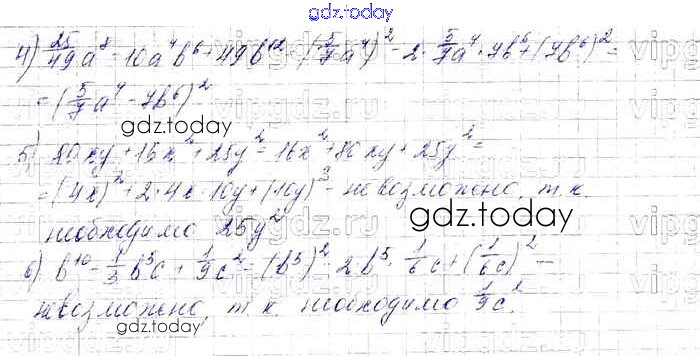 gdz.today
4) 25/49 a⁸ - 10a⁴b⁶ + 49b¹² = (5/7 a⁴)² - 2 · 5/7 a⁴ · 7b⁶ + (7b⁶)² =
= (5/7 a⁴ - 7b⁶)²
gdz.today
5) 80xy + 16x² + 25y² = 16x² + 80xy + 25y² =
= (4x)² + 2 · 4x · 10y + (10y)² - невозможно, т.к.
необходимо 25y²
gdz.today
6) b¹⁰ - 1/3 b⁵c + 1/9 c² = (b⁵)² - 2b⁵ · 1/6 c + (1/6 c)² -
невозможно, т.к. необходимо 1/9 c²
gdz.today